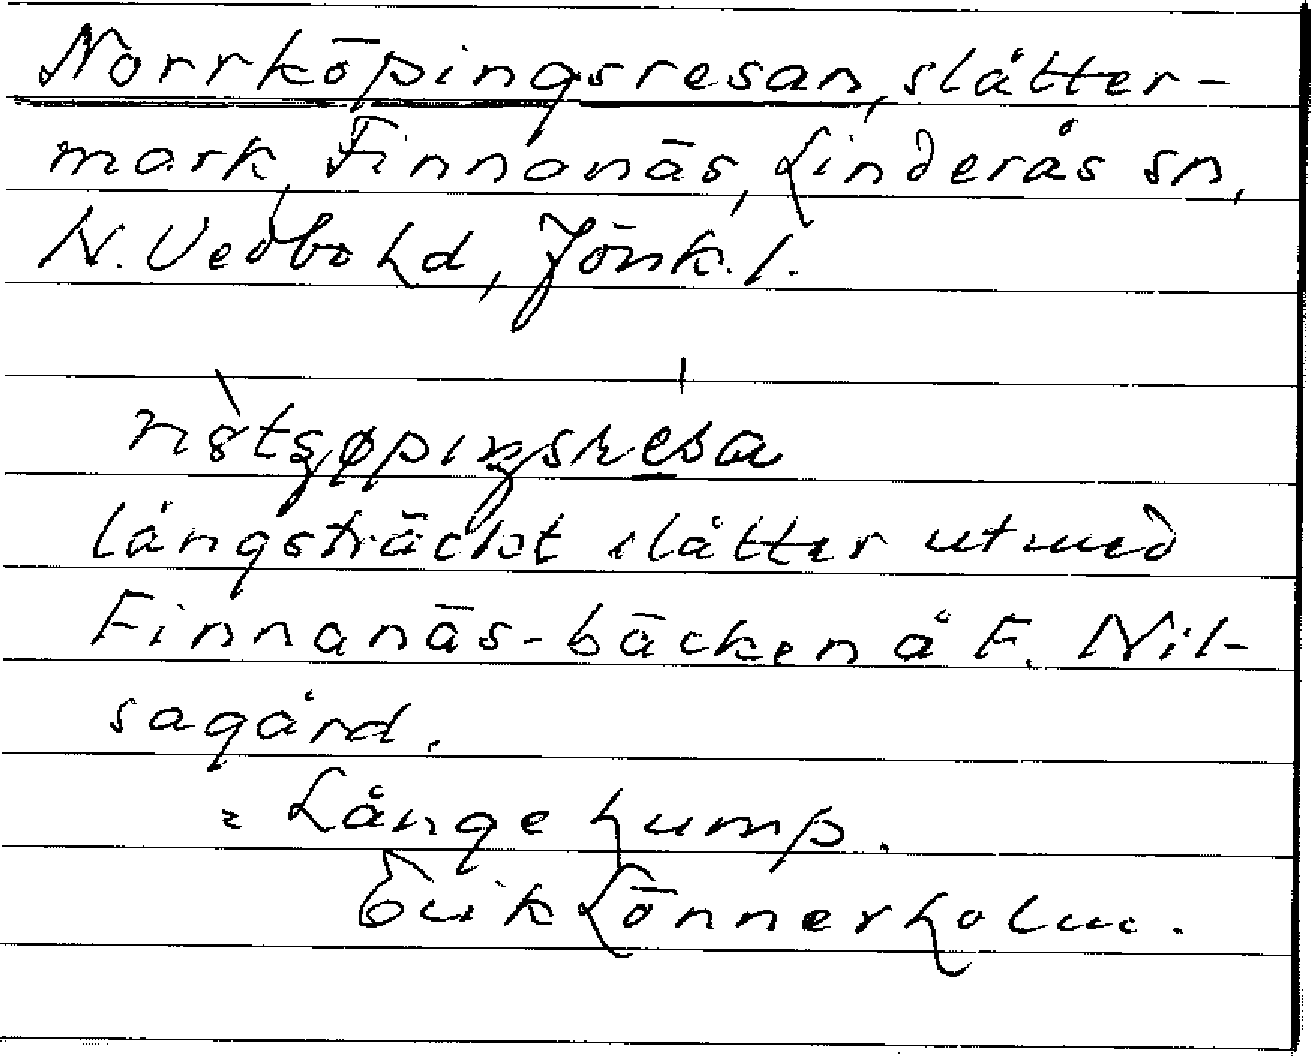 Norrköpingsresan, slåtter-
mark, Finnanäs, Linderås sn,
N. Vedbo hd, Jönk. l.
långsträckt slåtter utmed
Finnanäs-bäcken å F. Nil-
sagård.
= Långe hump.
Erik Lönnerholm.